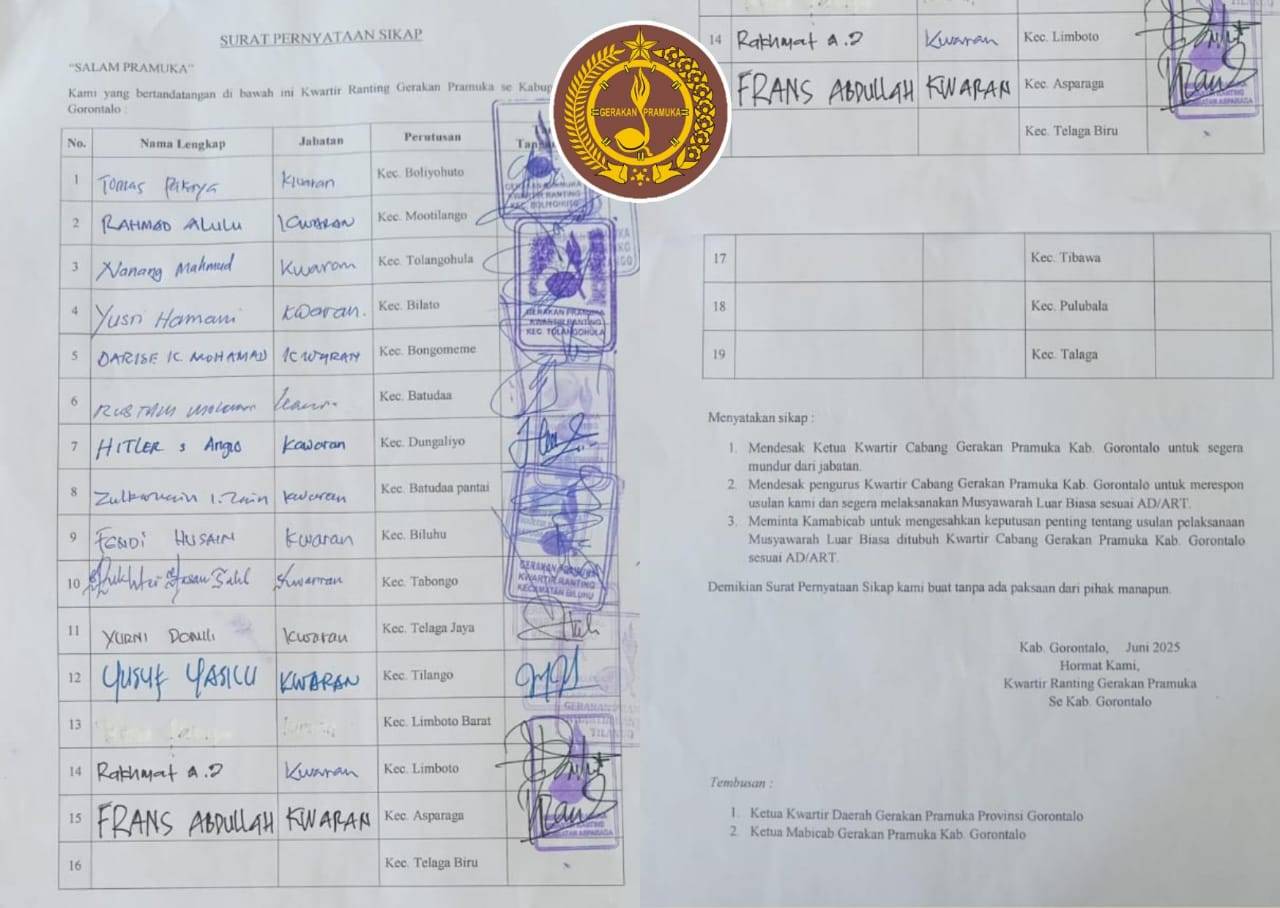 SURAT PERNYATAAN SIKAP
"SALAM PRAMUKA"
Kami yang bertandatangan di bawah ini Kwartir Ranting Gerakan Pramuka se Kabup
Gorontalo :
No. Nama Lengkap Jabatan Perutusan
1 Tomas Kwaran Kec. Boliyohuto
2 RAHMAD ALULU KWARAN Kec. Mootilango
3 Nanang Mahmud Kwaran Kec. Tolangohula
4 Yusri Hamani Kwaran. Kec. Bilato
5 DARISE K. MOHAMAD KWARAN Kec. Bongomeme
6 Kec. Batudaa
7 HITLER S Kawaran Kec. Dungaliyo
8 Zulkarnain I. Zain Kwaran Kec. Batudaa pantai
9 FENDI HUSAIN Kwaran Kec. Biluhu
10 Kwarran Kec. Tabongo
11 YURNI Kwaran Kec. Telaga Jaya
12 YUSUF YASICU KWARAN Kec. Tilango
13 Kec. Limboto Barat
14 Rakhmat A.D Kwaran Kec. Limboto
15 FRANS ABDULLAH KWARAN Kec. Asparaga
16 Kec. Telaga Biru
GERAKAN PRAMUKA
KWARTIR RANTING
KEC. BOLIYOHUTO
GERAKAN PRAMUKA
KWARTIR RANTING
KEC. TOLANGOHULA
GERAKAN PRAMUKA
KWARTIR RANTING
KECAMATAN BILUHU
GERAKAN PRAMUKA
14 Rakhmat A.D Kwaran Kec. Limboto
FRANS ABDULLAH KWARAN Kec. Asparaga
Kec. Telaga Biru
17 Kec. Tibawa
18 Kec. Pulubala
19 Kec. Talaga
Menyatakan sikap :
1. Mendesak Ketua Kwartir Cabang Gerakan Pramuka Kab. Gorontalo untuk segera
mundur dari jabatan.
2. Mendesak pengurus Kwartir Cabang Gerakan Pramuka Kab. Gorontalo untuk merespon
usulan kami dan segera melaksanakan Musyawarah Luar Biasa sesuai AD/ART.
3. Meminta Kamabicab untuk mengesahkan keputusan penting tentang usulan pelaksanaan
Musyawarah Luar Biasa ditubuh Kwartir Cabang Gerakan Pramuka Kab. Gorontalo
sesuai AD/ART.
Demikian Surat Pernyataan Sikap kami buat tanpa ada paksaan dari pihak manapun.
Kab. Gorontalo, Juni 2025
Hormat Kami,
Kwartir Ranting Gerakan Pramuka
Se Kab. Gorontalo
Tembusan :
1. Ketua Kwartir Daerah Gerakan Pramuka Provinsi Gorontalo
2. Ketua Mabicab Gerakan Pramuka Kab. Gorontalo